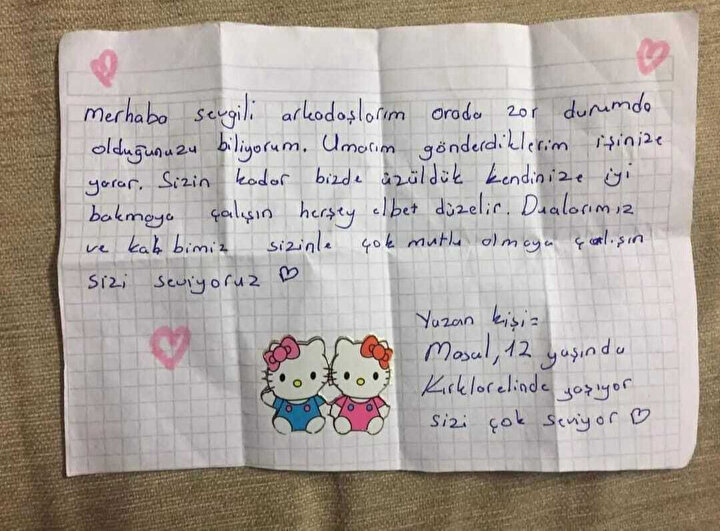 merhaba sevgili arkadaşlarım orada zor durumda
olduğunuzu biliyorum. Umarım gönderdiklerim işinize
yarar. Sizin kadar bizde üzüldük kendinize iyi
bakmaya çalışın herşey elbet düzelir. Dualarımız
ve kalbimiz sizinle çok mutlu olmaya çalışın
sizi seviyoruz ♡
Yazan kişi=
Masal, 12 yaşında
Kırklarelinde yaşıyor
sizi çok seviyor ♡